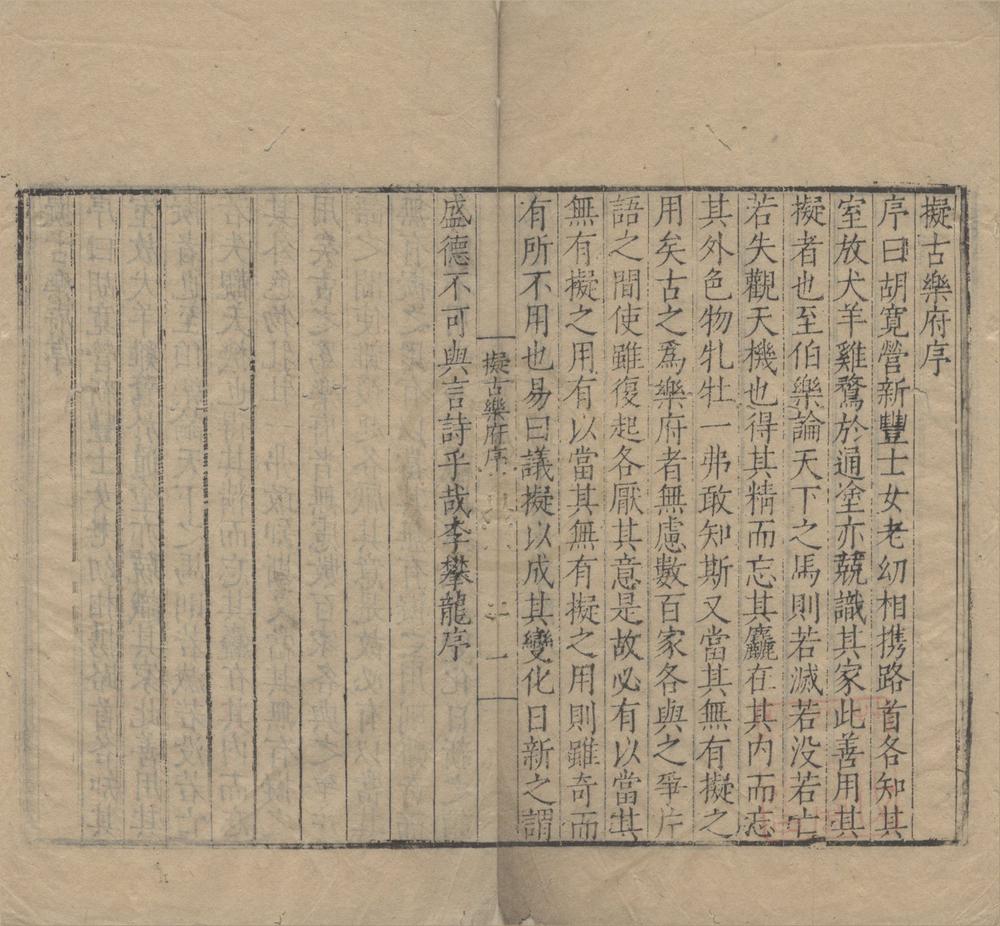 擬古樂府序
序曰胡寛營新豐士女老幼相携路首各知其
室放犬羊雞鶩於通塗亦競識其家此善用其
擬者也至伯樂論天下之馬則若滅若没若亡
若失觀天機也得其精而忘其麤在其内而忘
其外色物牝牡一弗敢知斯又當其無有擬之
用矣古之爲樂府者無慮數百家各與之爭片
語之間使雖復起各厭其意是故必有以當其
無有擬之用有以當其無有擬之用則雖奇而
有所不用也易曰議擬以成其變化日新之謂
擬古樂府序
一
盛德不可與言詩乎哉李攀龍序